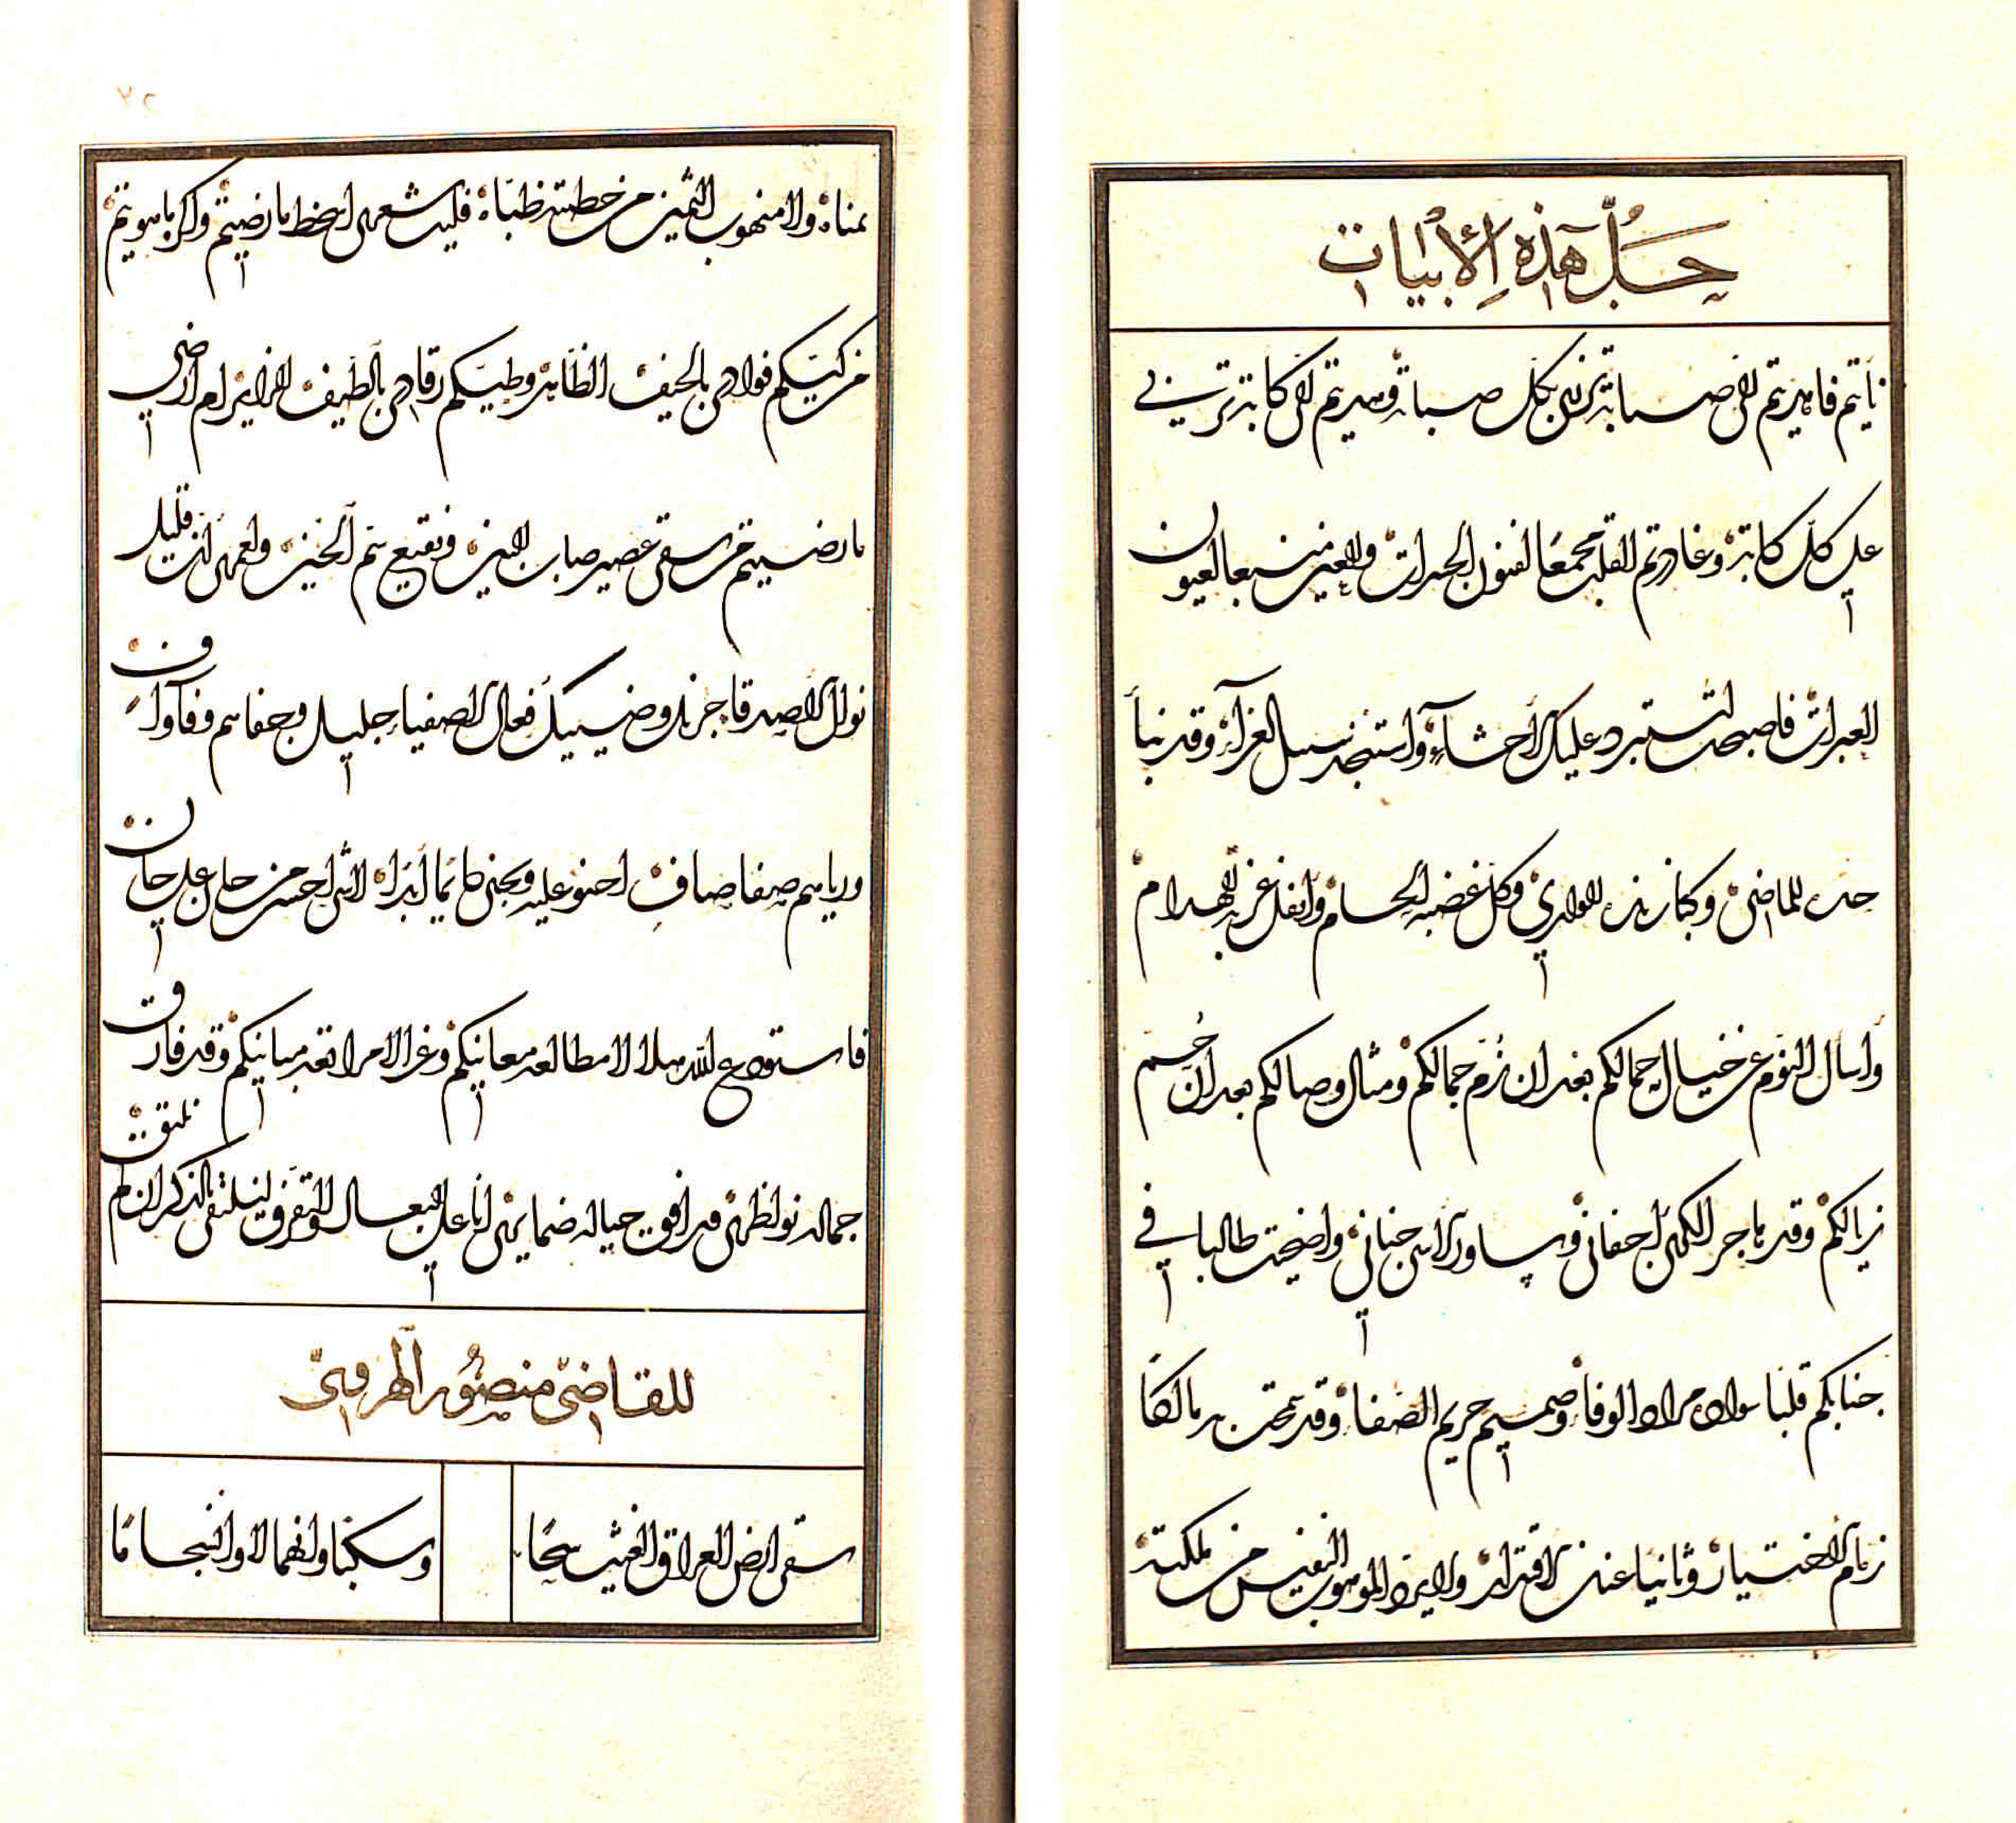 حل هذه الأبيات
نأيتم فاهديتم الى صبابة تزرى بكل صبابة وسرتم الى كآبة تربى
على كل كآبة وغادرتم القلب مجمعا لفنون الحسرات والعين منبعا لعيون
العبرات فاصبحت استبرد غليل الأحشاء واستنجد سيل العزاء وقد نبا
حد الماضى وكبا زند الوارى وكل عضبه الحسام وانفل غربه الهذام
وأسأل النوم عن خيال جمالكم بعد ان زم جمالكم ومثال وصالكم بعد ان حم
زيالكم وقد هاجر الكرى اجفانى وساور الاسى جنانى واضحيت طالبا فى
جنابكم قلبا سواده مراد الوفاء وصميمه حريم الصفاء وقد تمحت يد مالكها
زمام الاختيار وثانيا عنان الاقتدار ولا يرد الموهوب النفيس من ملكته
يمناه ولا المنهوب الثمين من خطته ظباه فليت شعرى اسخط ما رضيتم واكره ما هويتم
من كيكم فوادى بالحيف الظاهر وطيكم رقادى بالطيف الزاير ام ارضى
ما رضيتم من سقى عصير صاب البين ونقيع سم الحين ولعمرى ان قليل
نوال الاصدقا جزيل وضييل فعال الاصفياء جليل وجفاهم وفاء واف
ورياهم صفا صاف احنو عليه ويجنى دايما أبدا لا شى احسن من حان على جان
فاستودع الله بلادا لا مطالعة معانيكم وغرا لا مراتعة مبانيكم وقد فارق
جماله نواظرى ورافق خياله ضمايرى انا على البعاد والتفرق لنلتقى بالذكر ان لم نلتق
للقاضى منصور الهروى
سقى ارض العراق الغيث سحا وسكبا وانهمالا وانسجاما